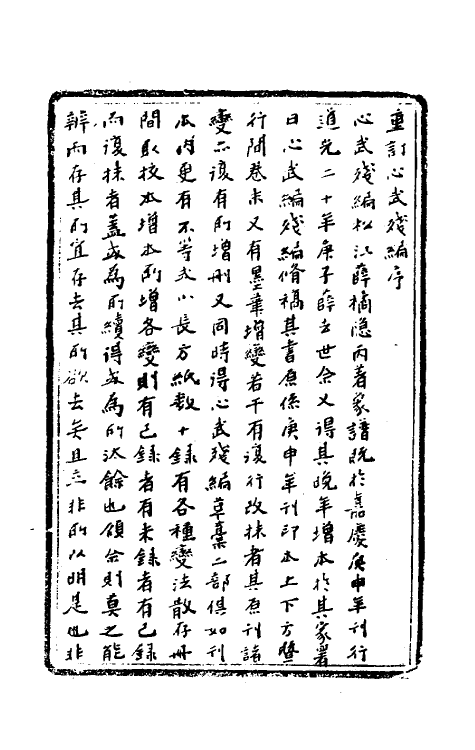 重訂心武殘編序
心武殘編松江薛橘隱丙著象譜既於嘉慶庚申年刊行
道光二十年庚子薛去世余又得其晚年增本於其家署
曰心武編殘編脩稿其書原係庚申年刊印本上下方暨
行間卷末又有墨筆增變若干有複行改抹者其原刊諸
變亦複有所增刪又同時得心武殘編草稾二部俱如刊
本內更有不等式小長方紙數十錄有各種變法散存册
間取校本增本所增各變則有已錄者有未錄者有已錄
而復抹者蓋或為所續得或為所汰餘也顧余則莫之能
辨而存其所宜存去其所欲去矣且立非所以明是也非